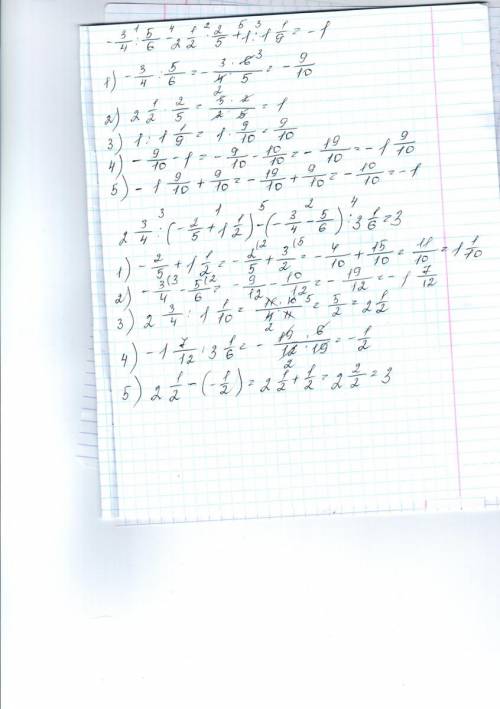 -3/4 : 5/6 - 2 1/2 · 2/5 + 1 : 1 1/9 = -1
1) -3/4 : 5/6 = - 3·6/4·5 = - 9/10
2) 2 1/2 · 2/5 = 5·2/2·5 = 1
3) 1 : 1 1/9 = 1 · 9/10 = 9/10
4) - 9/10 - 1 = - 9/10 - 10/10 = - 19/10 = -1 9/10
5) -1 9/10 + 9/10 = - 19/10 + 9/10 = - 10/10 = -1
2 3/4 : (- 2/5 + 1 1/2) - (- 3/4 - 5/6) : 3 1/6 = 3
1) - 2/5 + 1 1/2 = - 2/5 + 3/2 = - 4/10 + 15/10 = 11/10 = 1 1/10
2) - 3/4 - 5/6 = - 9/12 - 10/12 = - 19/12 = -1 7/12
3) 2 3/4 : 1 1/10 = 11·10/4·11 = 5/2 = 2 1/2
4) -1 7/12 : 3 1/6 = - 19·6/12·19 = - 1/2
5) 2 1/2 - (- 1/2) = 2 1/2 + 1/2 = 2 2/2 = 3